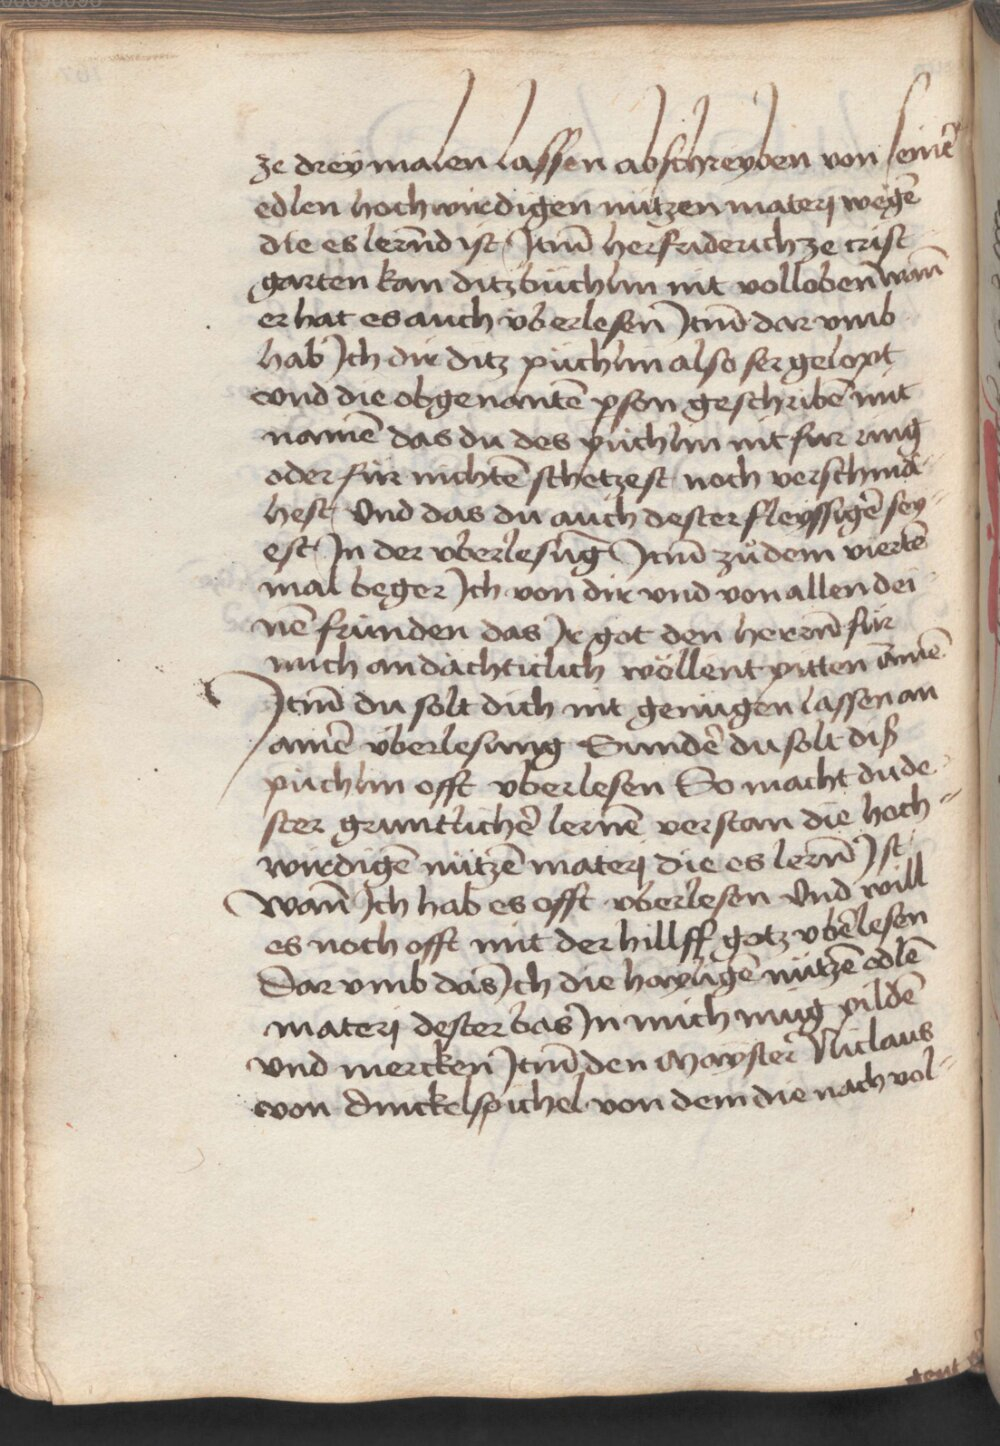 ze dreymalen lassen abschreyben von seinē
edlen hochwirdigen nützen materj wegē
die es lernd ist Itm̄ her fridereich ze crist
garten kan ditz büchlin nit volloben wan̄
er hat es auch v̈berlesen Itm̄ dar vmb
hab Ich dir ditz püchlin also ser gelopt
vnd die obgenantē pson geschribē mit
namē das du des püchlin nit fur ring
oder für nichtē schetzest noch verschma-
hest Vnd das du auch dester fleyssigē sey-
est In der v̈berlesūg Itm̄ zů dem viertē
mal beger Ich von dir vnd von allen dei-
nē frunden das Ir got den herrn̄ für
mich andächticlich wöllent pitten amē
Itm̄ du solt dich nit genügen lassen an
ainē v̈berlesung Sundē du solt diß
püchlin offt v̈berlesen So macht du de-
ster gruntlichē lernē verstan die hoch-
wirdigē nützē materj die es lern̄ Ist
Wan̄ Ich hab es offt v̈berlesen Vnd will
es noch offt mit der hillff gotz v̈bēlesen
Dar vmb das Ich die hayligē nützē edlē
materj dester bas In mich müg pildē
vnd mercken Itm̄ den Mayster Niclaus
von dinckelspichel von dem die nach vol-